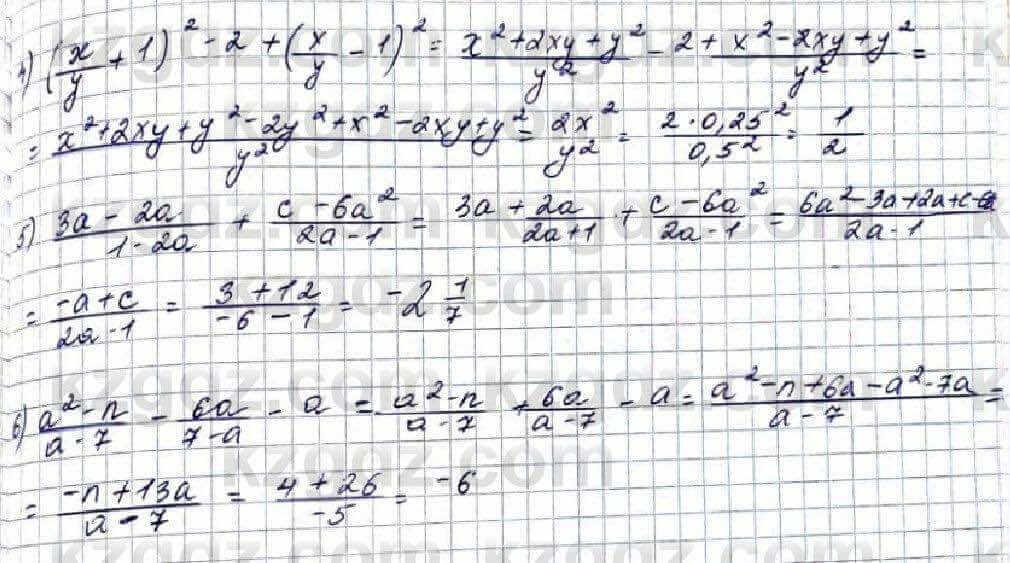 4) (x/y + 1)² - 2 + (x/y - 1)² = (x² + 2xy + y²)/y² - 2 + (x² - 2xy + y²)/y² =
= (x² + 2xy + y² - 2y² + x² - 2xy + y²)/y² = 2x²/y² = (2 · 0,25²)/0,5² = 1/2
5) (3a - 2a)/(1 - 2a) + (c - 6a²)/(2a - 1) = 3a + 2a/(2a + 1) + (c - 6a²)/(2a - 1) = (6a² - 3a + 2a + c - 6)/(2a - 1)
= (-a + c)/(2a - 1) = (3 + 12)/(-6 - 1) = -2 1/7
6) (a² - n)/(a - 7) - 6a/(7 - a) - a = (a² - n)/(a - 7) + 6a/(a - 7) - a = (a² - n + 6a - a² - 7a)/(a - 7) =
= (-n + 13a)/(a - 7) = (4 + 26)/-5 = -6
kzgdz.com kzgdz.com